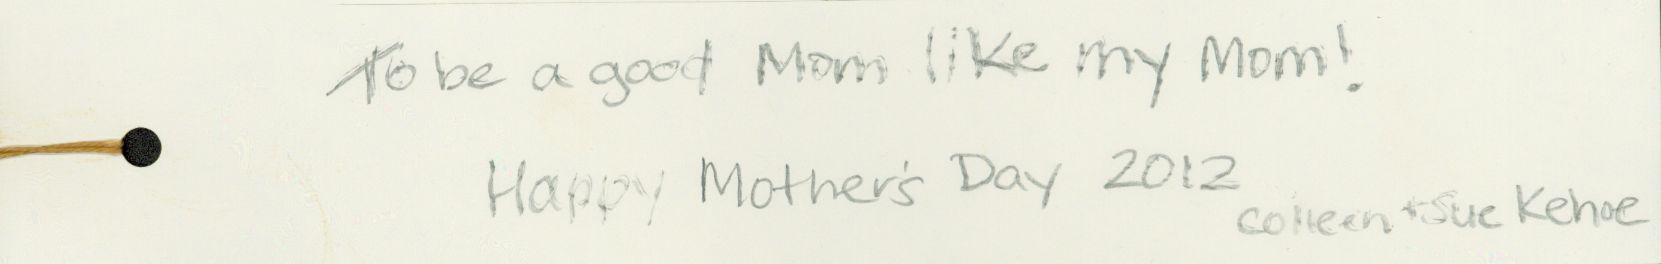 To be a good Mom like my Mom!
Happy Mother's Day 2012
Colleen + Sue Kehoe